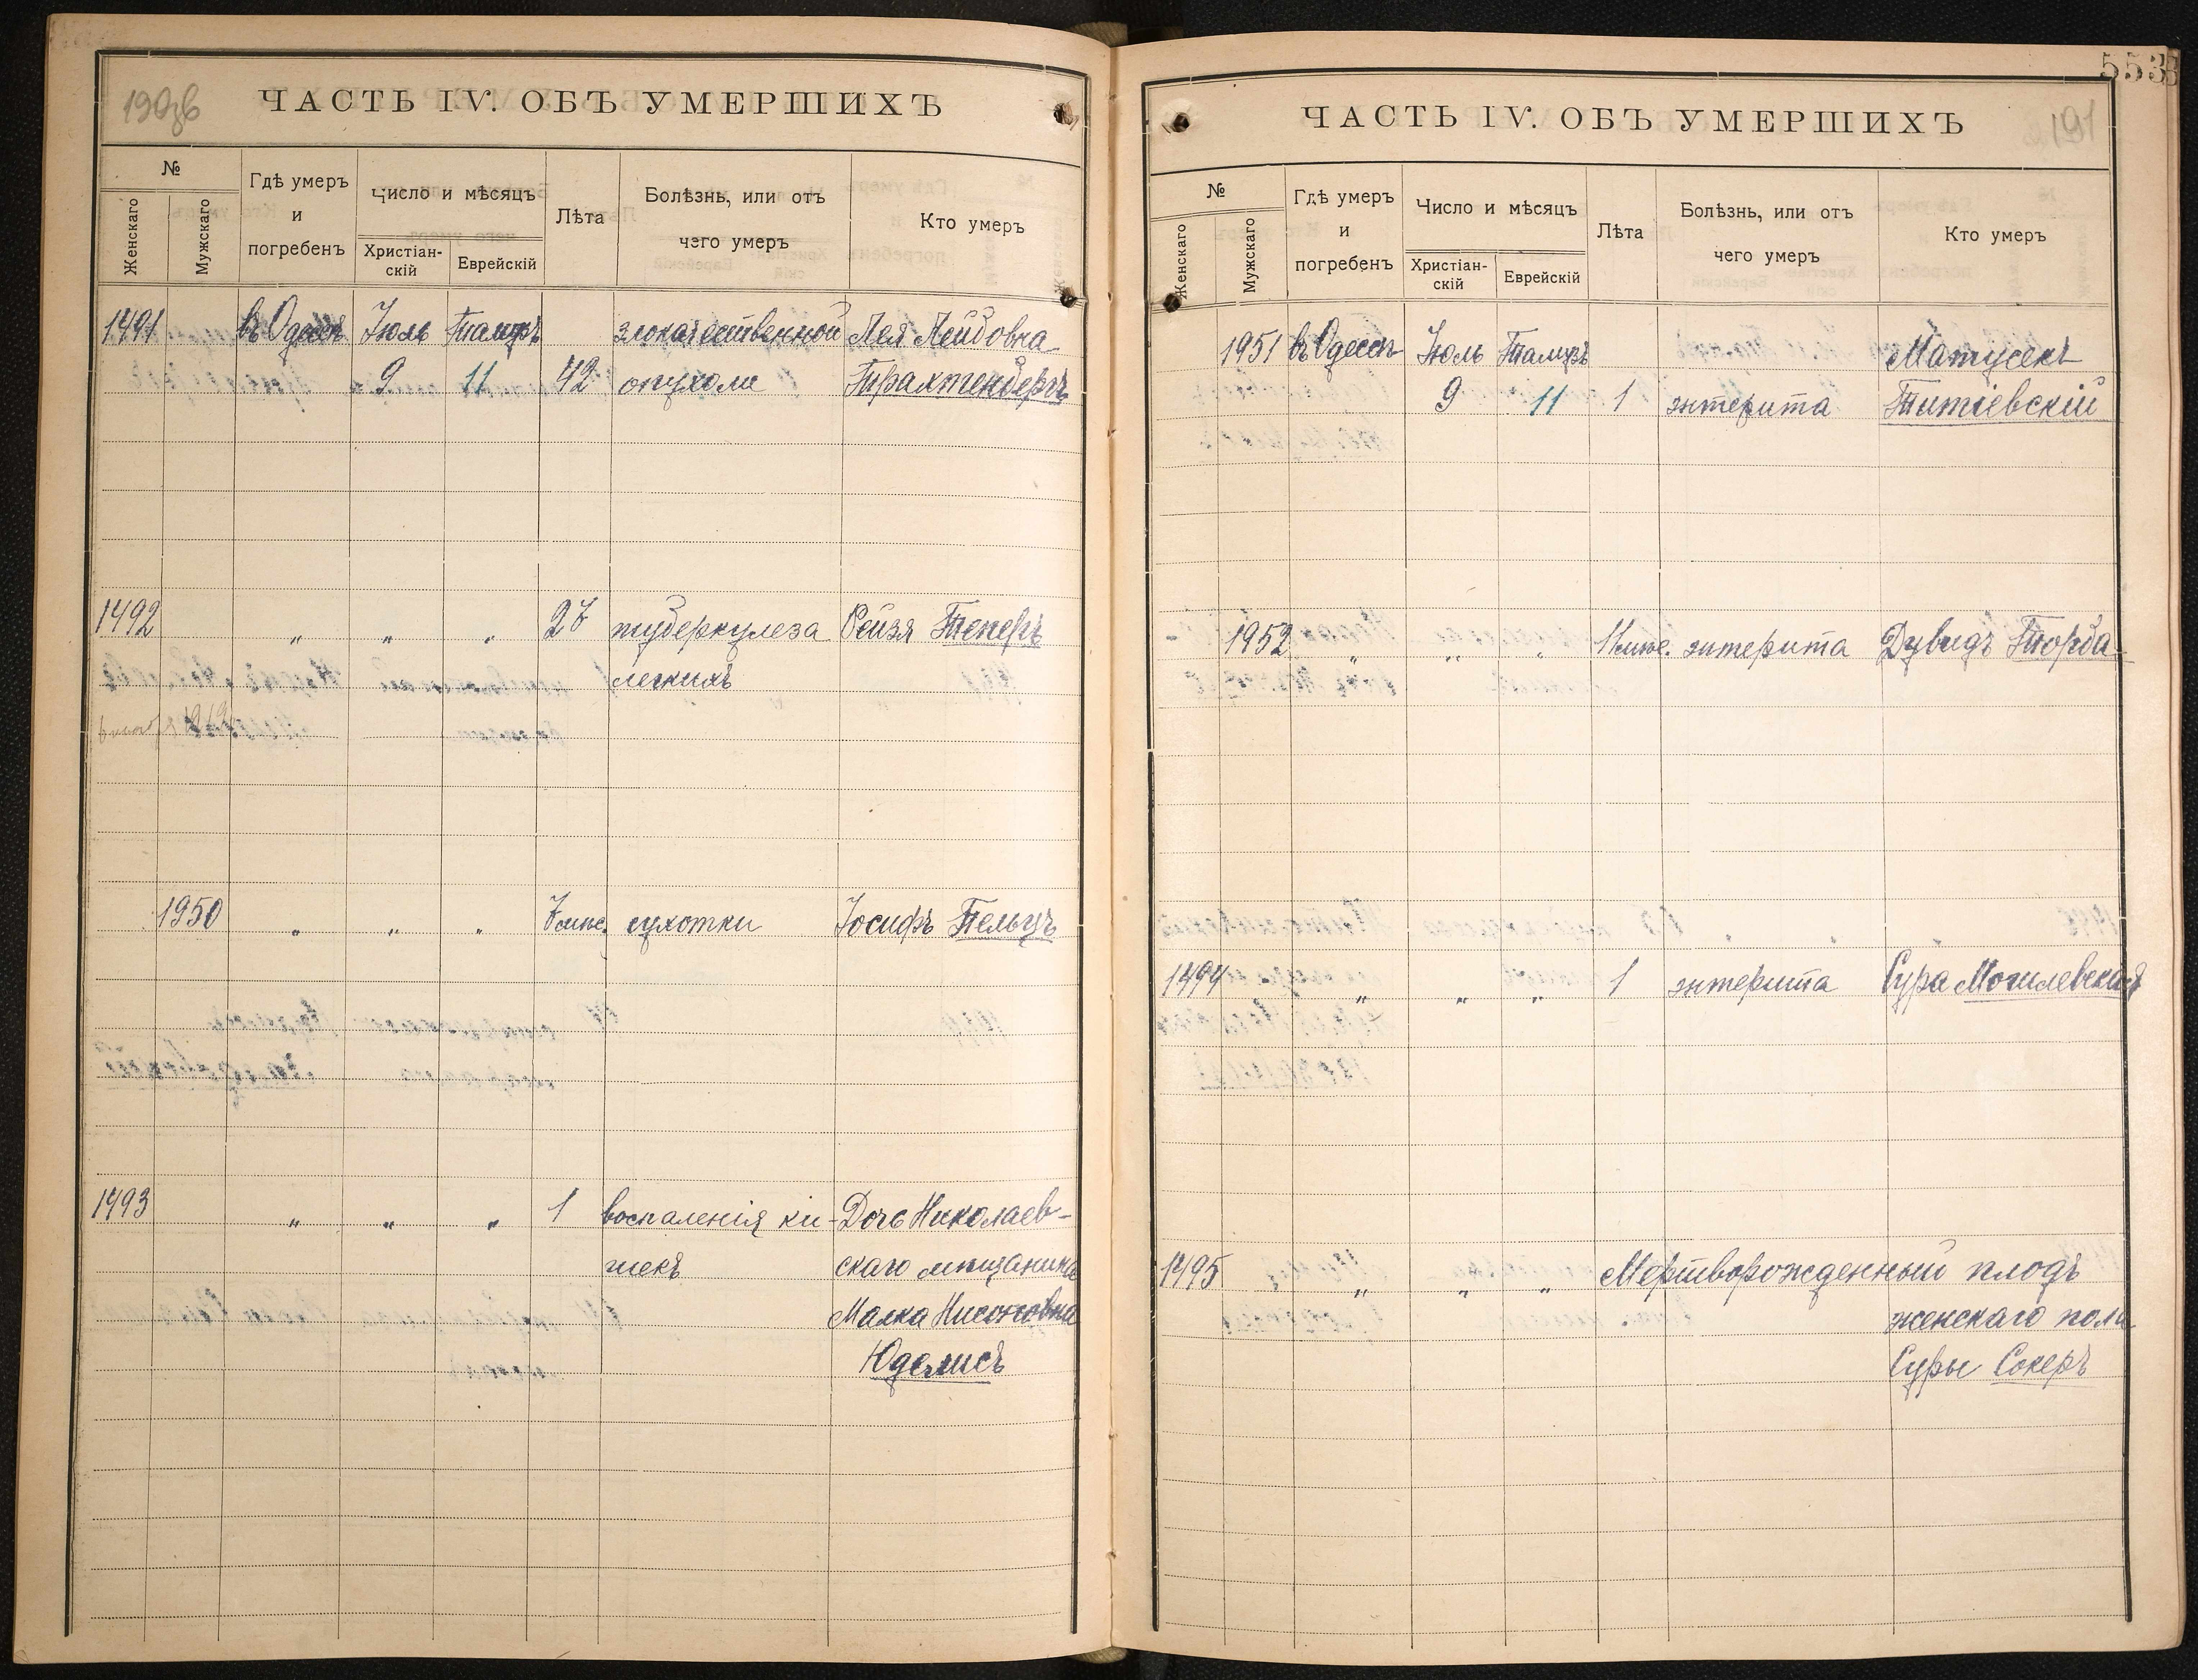 ЧАСТЬ IV. ОБЪ УМЕРШИХЪ
№
Женскаго
Мужскаго
Гдѣ умеръ
и
погребенъ
Число и мѣсяцъ
Христіан-
скій
Еврейскій
Лѣта
Болѣзнь, или отъ
чего умеръ
Кто умеръ
1491 въ Одессѣ Іюль Тамузъ злокачественной Лея Лейбовна
9 11 42 опухоли Трахтенбергъ
1492 " " " 27 туберкулеза Рейзя Текеръ
легкихъ
1950 " " " 7 мѣс. сухотки Іосифъ Пельцъ
1493 " " " 1 воспаленія ки- Дочь Николаев-
шекъ скаго мѣщанина
Малка Нисоновна
Юделисъ
553
ЧАСТЬ IV. ОБЪ УМЕРШИХЪ
191
№
Женскаго
Мужскаго
Гдѣ умеръ
и
погребенъ
Число и мѣсяцъ
Христіан-
скій
Еврейскій
Лѣта
Болѣзнь, или отъ
чего умеръ
Кто умеръ
1951 въ Одессѣ Іюль Тамузъ Матусекъ
9 11 1 энтерита Титіевскій
1952 " " " 11 мѣс. энтерита Дувидъ Торба
1494 " " " 1 энтерита Сура Могилевская
1495 " " " Мертворожденный плодъ
женскаго пола
Суры Сокеръ